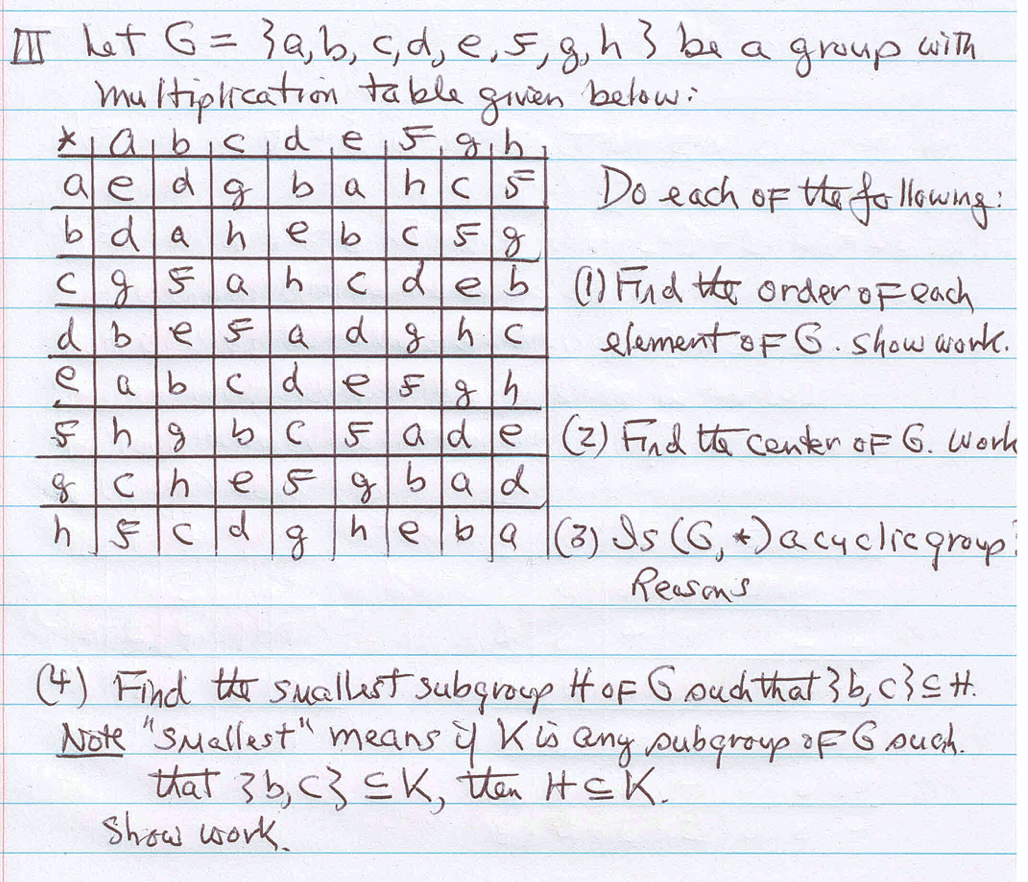 III Let G = {a, b, c, d, e, f, g, h} be a group with
multiplication table given below:
* a b c d e f g h
a e d g b a h c f
b d a h e b c f g
c g f a h c d e b
d b e f a d g h c
e a b c d e f g h
f h g b c f a d e
g c h e f g b a d
h f c d g h e b a
Do each of the following:
(1) Find the order of each
element of G. Show work.
(2) Find the center of G. Work
(3) Is (G, *) a cyclic group?
Reasons
(4) Find the smallest subgroup H of G such that {b, c} ⊆ H.
Note "smallest" means if K is any subgroup of G such
that {b, c} ⊆ K, then H ⊆ K.
Show work.